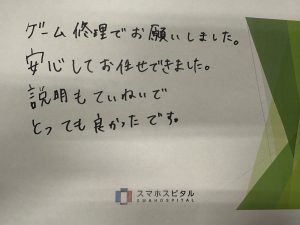 ゲーム修理でお願いしました。
安心してお任せできました。
説明もていねいで
とっても良かったです。
スマホスピタル
SMAHOSPITAL